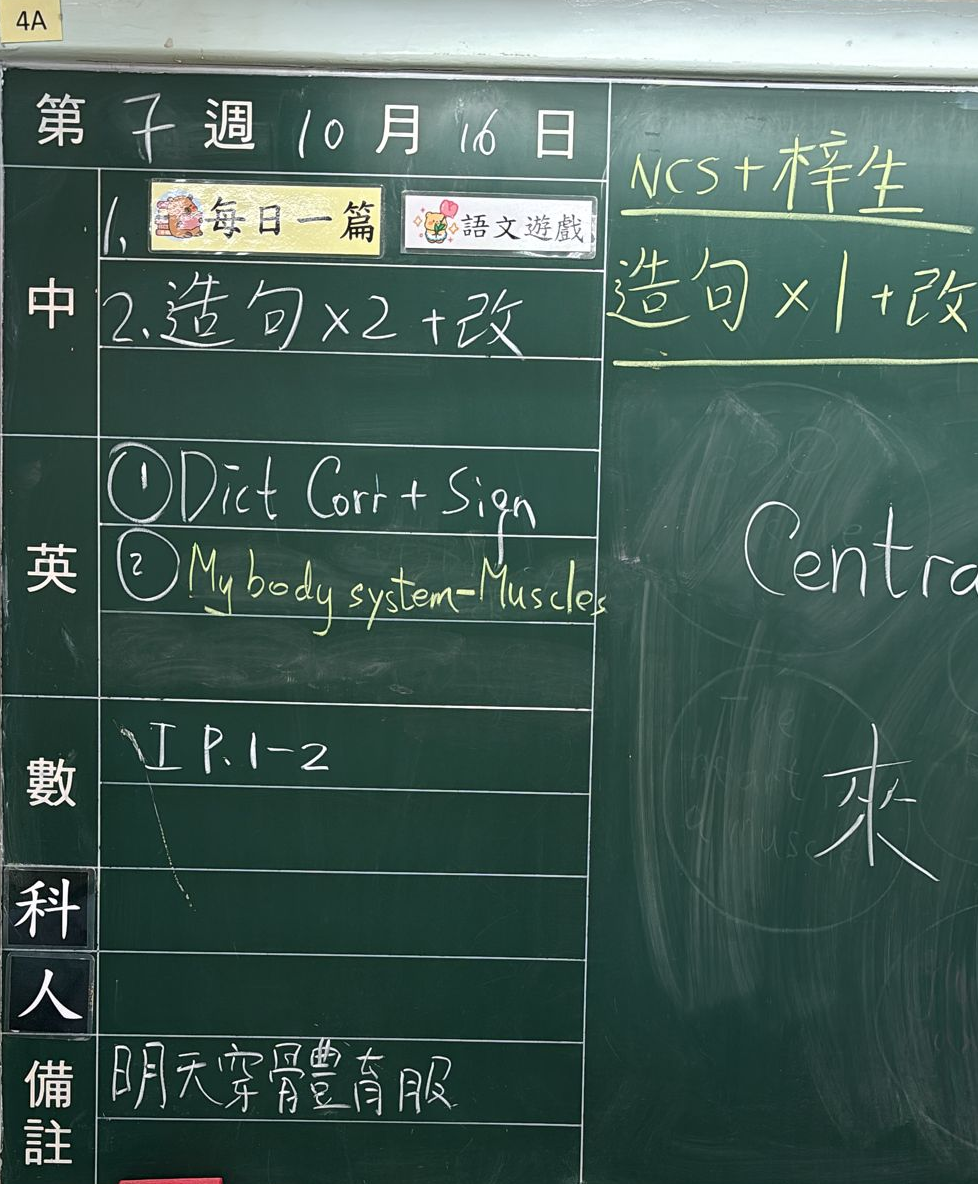 4A
第 7 週 10 月 16 日
中
1. 每日一篇 語文遊戲
2. 造句 x2 + 改
英
① Dict Corr + Sign
② My body system - Muscles
數
工 P. 1-2
科
人
備註
明天穿體育服
NCS + 梓生
造句 x 1 + 改
Centra
來